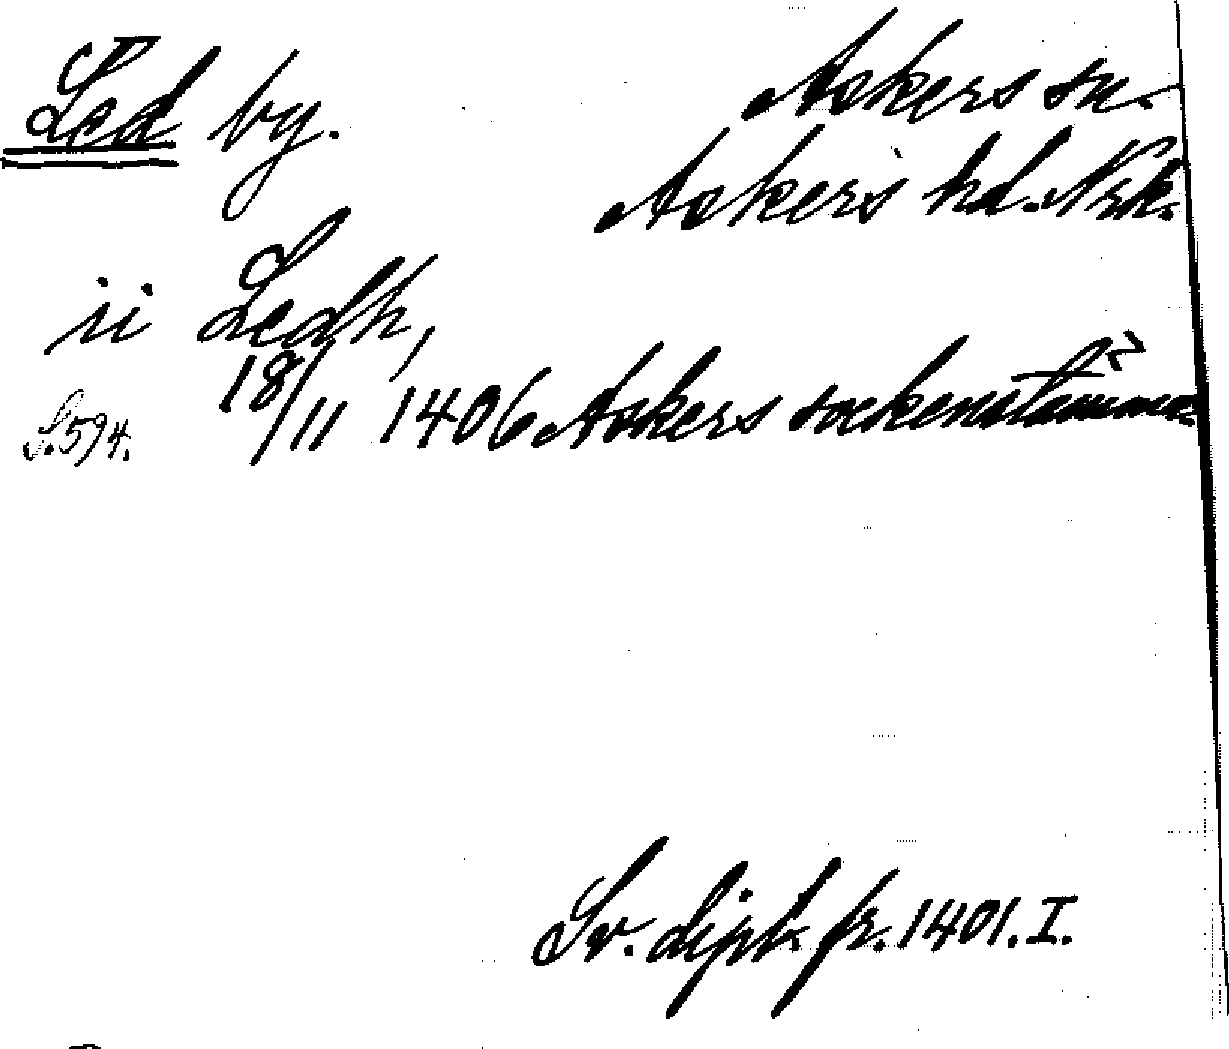 Led by.
Askers sn.
Askers hd. Nrk.
ii Ledh,
18/11 1406 Askers sockenstämma
S. 594.
Sv. dipl. fr. 1401. I.